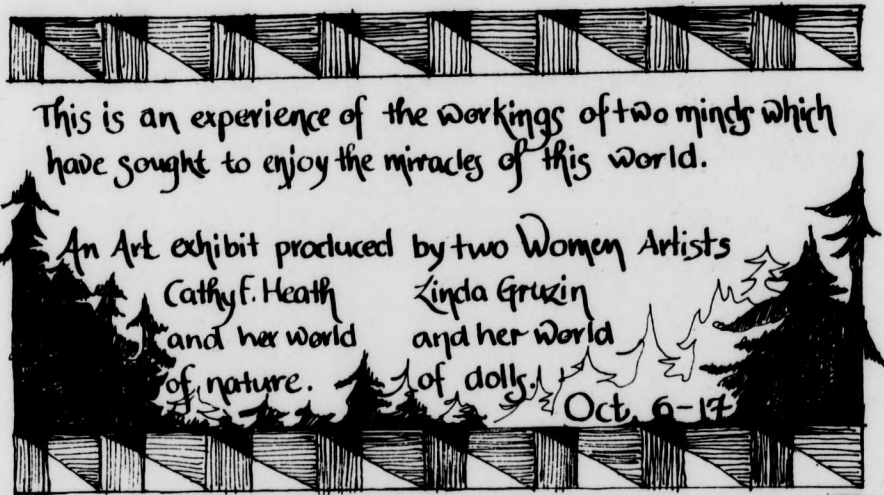 This is an experience of the workings of two minds which
have sought to enjoy the miracles of this world.
An Art exhibit produced by two Women Artists
Cathy F. Heath
and her world
of nature.
Linda Gruzin
and her world
of dolls.
Oct. 6-17